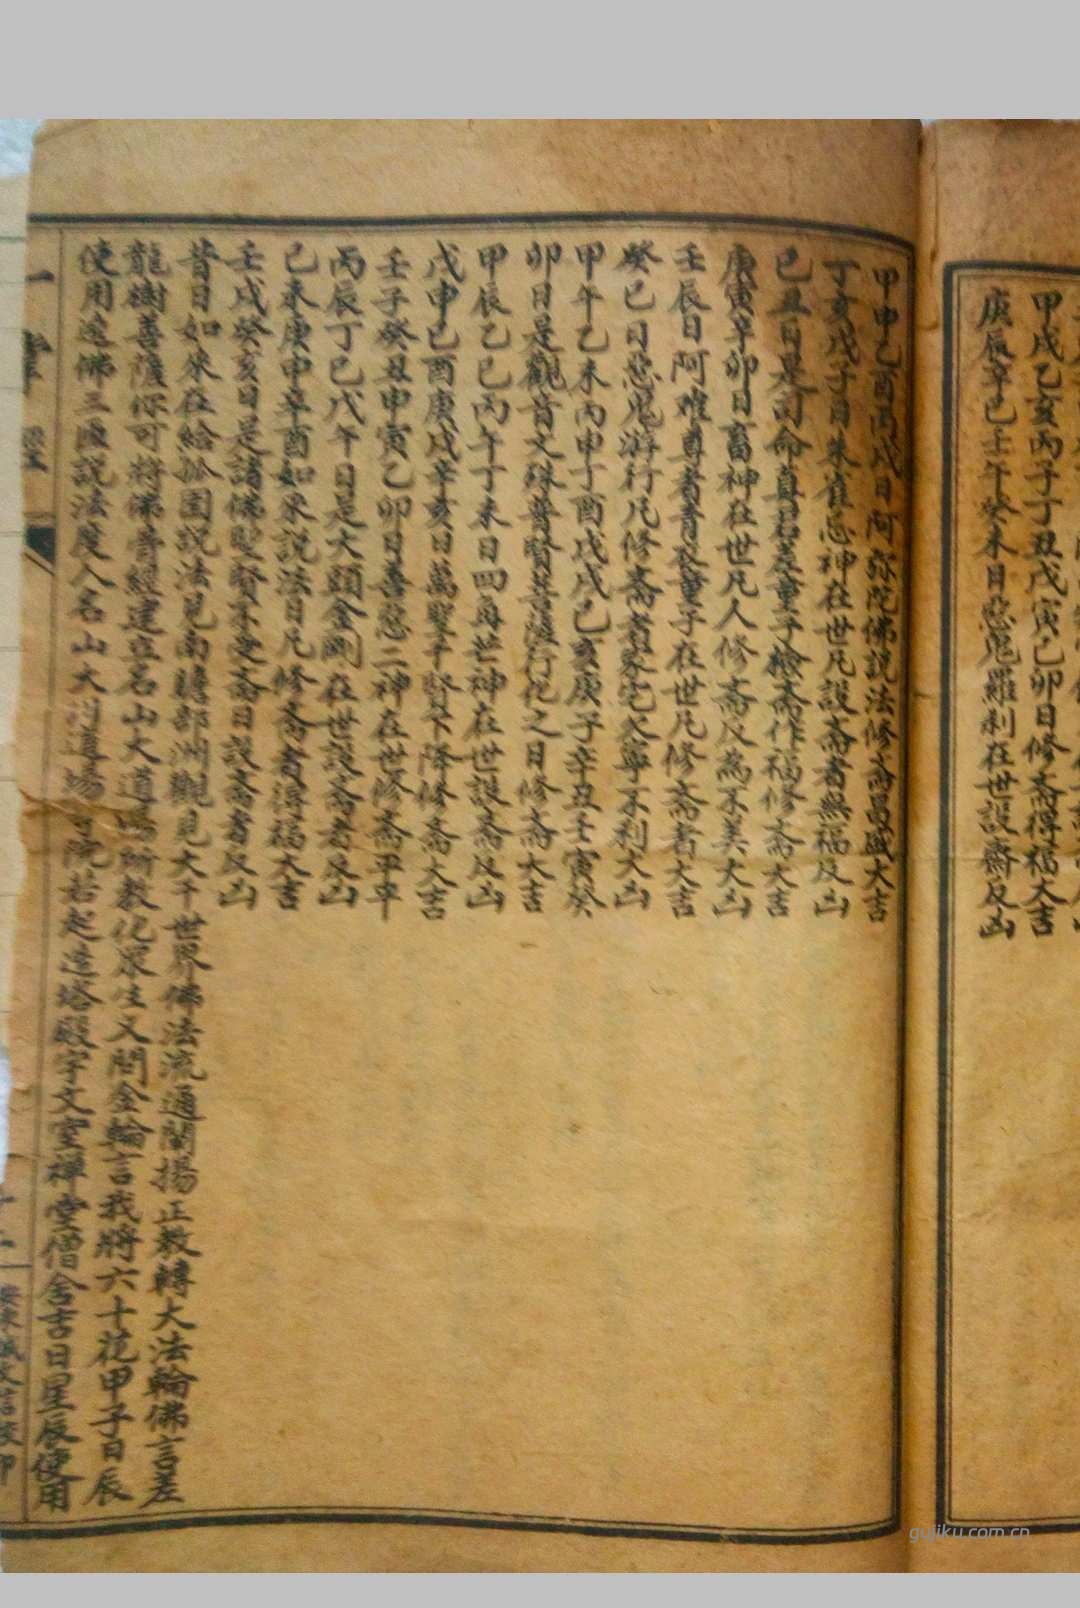 甲戌乙亥丙子丁丑戊寅己卯日修斋得福大吉
庚辰辛巳壬午癸未日恶鬼羅刹在世設齋反凶
甲申乙酉丙戌日阿弥陀佛説法修斋昌盛大吉
丁亥戊子日朱雀惡神在世凡設斋者無福反凶
己丑日是司命真君差童子檢斋作福修斋大吉
庚寅辛卯日畜神在世凡人修斋反為不美大凶
壬辰日阿难尊者青衣童子在世凡修斋者大吉
癸巳日恶鬼游行凡修斋者家宅欠寧不利大凶
甲午乙未丙申丁酉戊戌己亥庚子辛丑壬寅癸
卯日是觀音文殊普賢菩薩行化之日修斋大吉
甲辰乙巳丙午丁未日四每芒神在世設斋反凶
戊申己酉庚戌辛亥日萬聖千賢下降修斋大吉
壬子癸丑甲寅乙卯日善惡二神在世修斋平平
丙辰丁巳戊午日是大頭金剛在世設斋者反凶
己未庚申辛酉如來説法日凡修斋者得福大吉
壬戌癸亥日是諸佛聖賢不受斋日設斋者反凶
昔日如來在給孤園説法見南瞻部洲觀見大千世界佛法流通闡揚正教轉大法輪佛言差
龍樹善薩你可將佛背經建立名山大道場所教化眾生又問金輪言我將六十花甲子日辰
使用遶佛三匝説法度人名山大道場院若起造塔殿宇文室禅堂僧舍吉日星辰使用